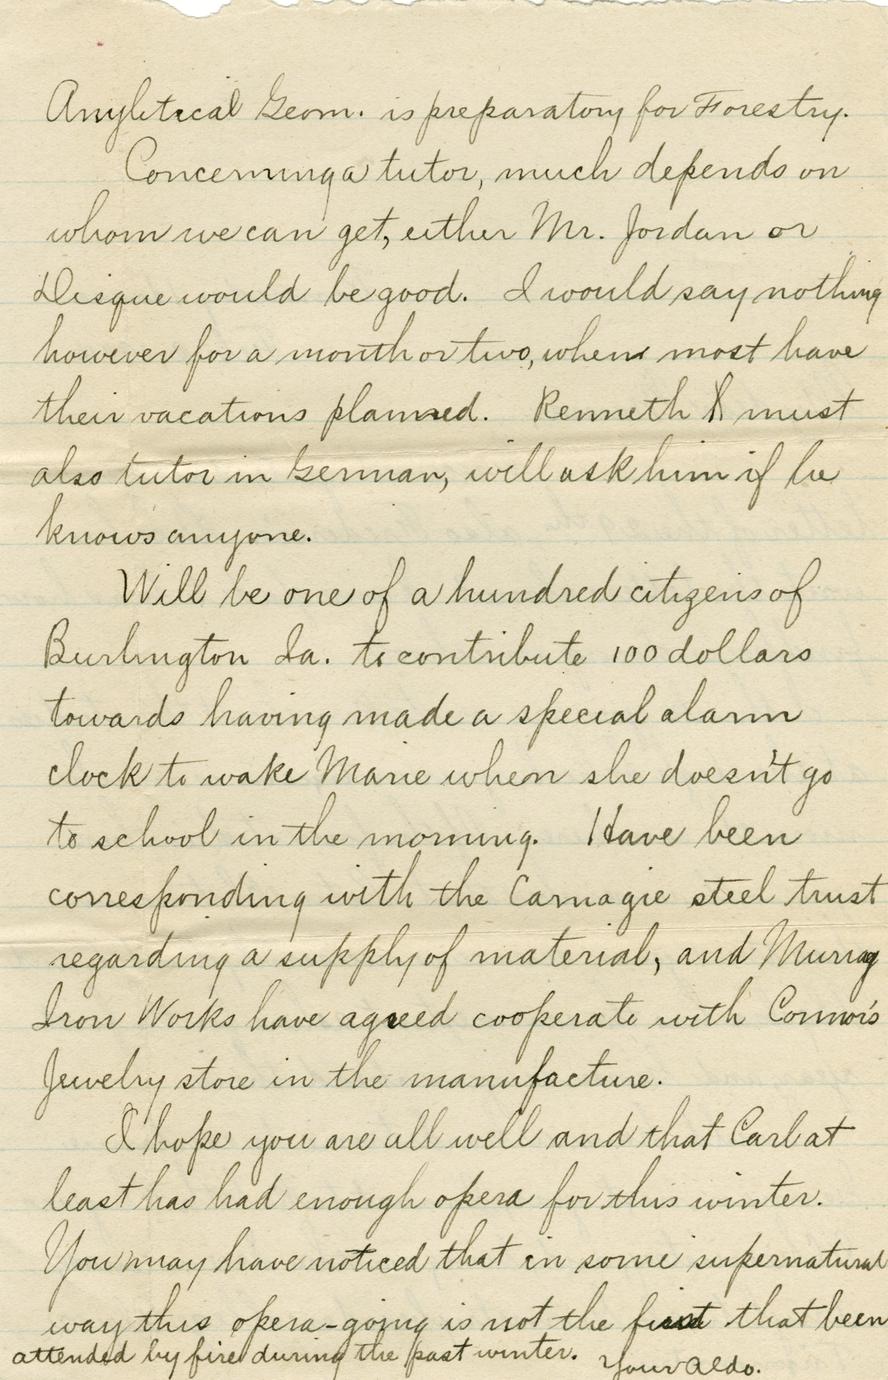 Anylitical Geom. is preparatory for Forestry.
Concerning a tutor, much depends on
whom we can get, either Mr. Jordan or
Disque would be good. I would say nothing
however for a month or two, when most have
their vacations planned. Kenneth must
also tutor in German, will ask him if he
knows anyone.
Will be one of a hundred citizens of
Burlington Ia. to contribute 100 dollars
towards having made a special alarm
clock to wake Marie when she doesn't go
to school in the morning. Have been
corresponding with the Carnagie steel trust
regarding a supply of material, and Murray
Iron Works have agreed cooperate with Connor's
Jewelry store in the manufacture.
I hope you are all well and that Carl at
least has had enough opera for this winter.
You may have noticed that in some supernatural
way this opera-going is not the first that been
attended by fire during the past winter. Your Aldo.